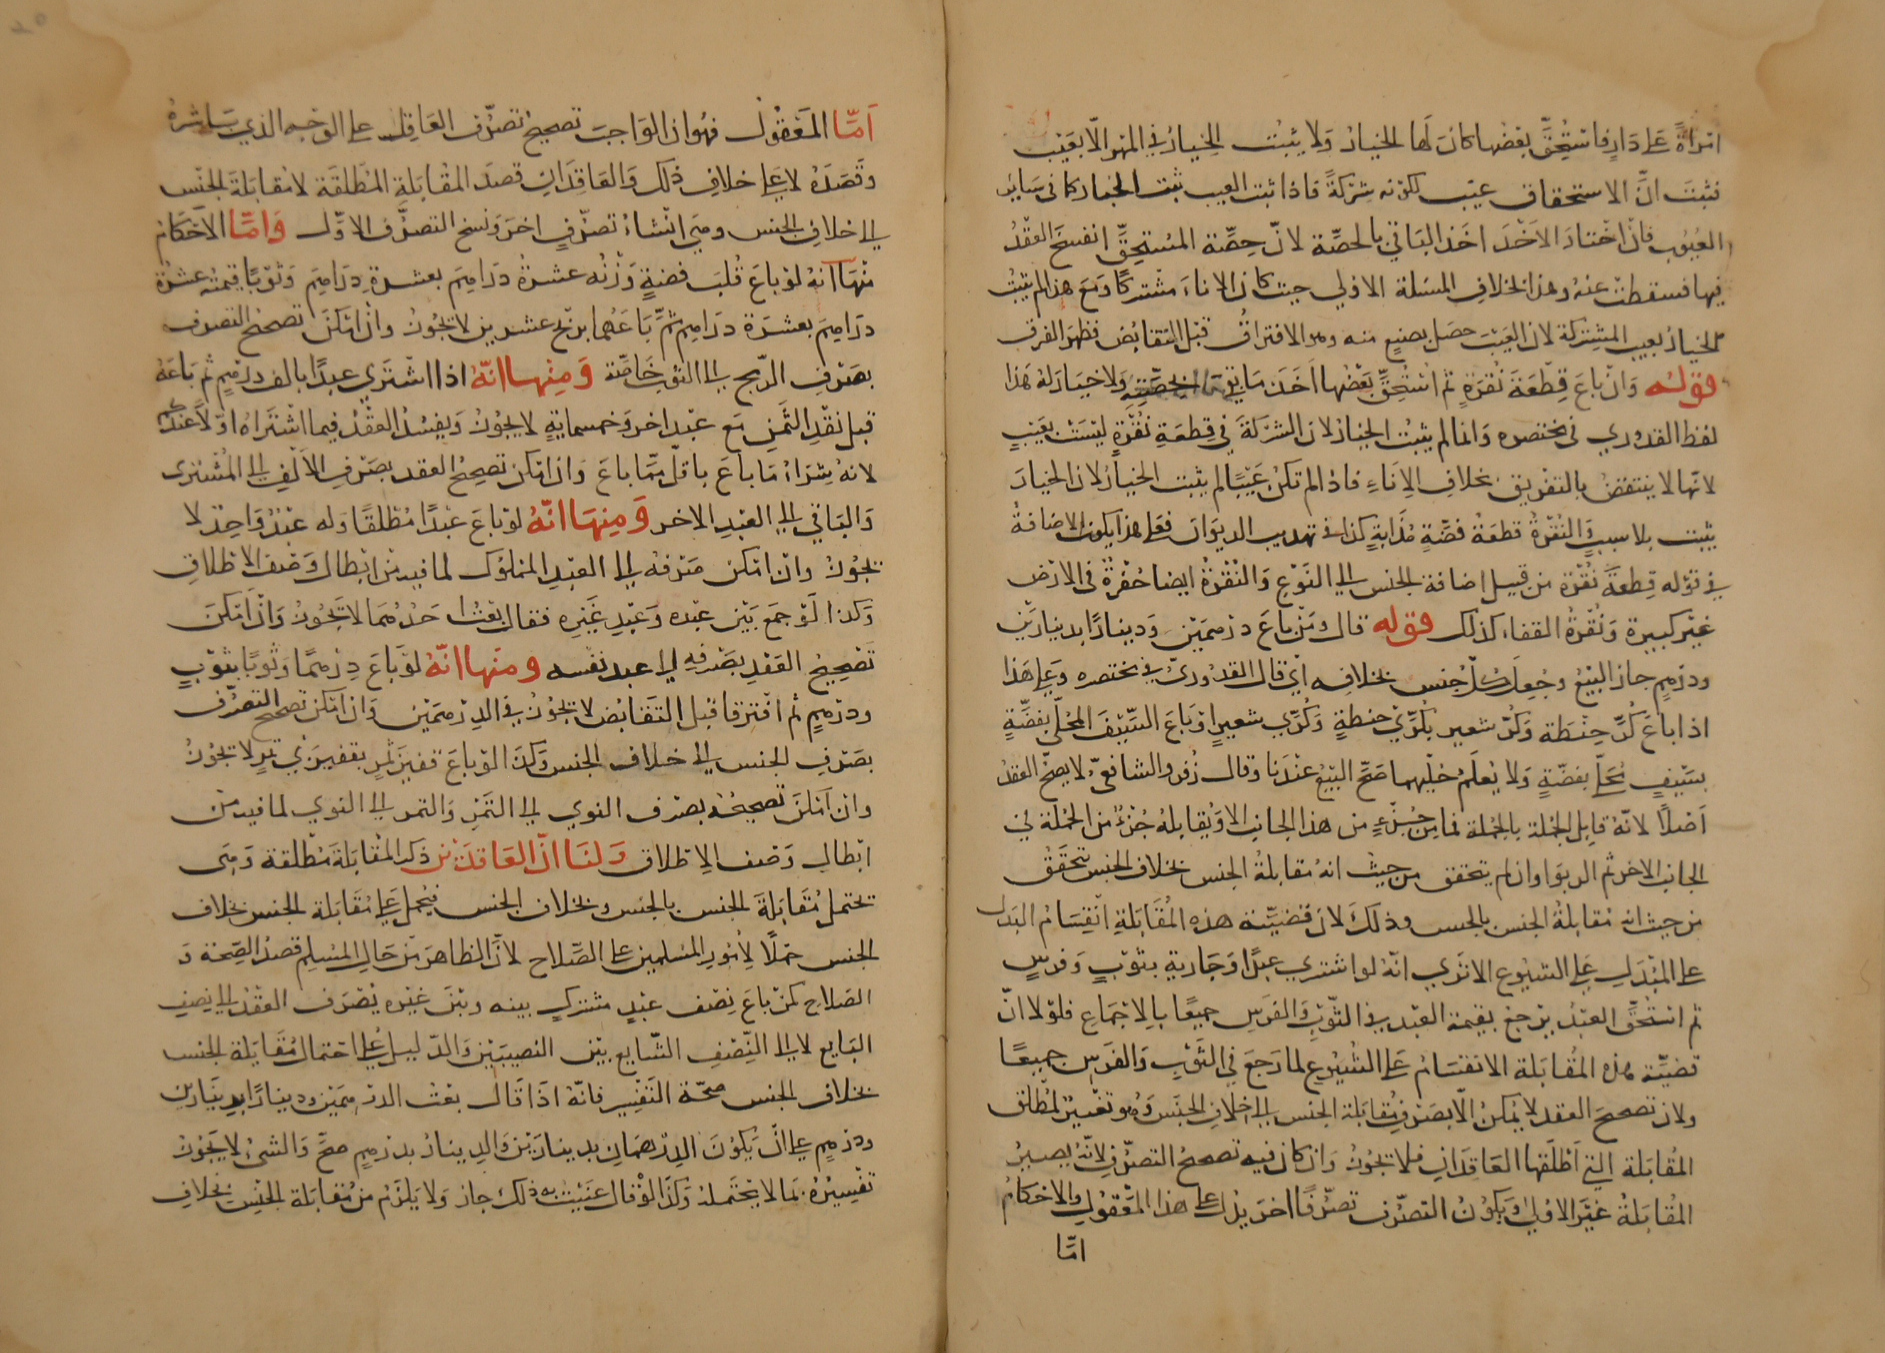 امرأةً على دَارٍ فاستُحِقَّ بعضُها كانَ لَها الخيارُ وَلا يثبُت الخيارُ في المهر الّا بعَيب
فثبتَ انَّ الاستحقاق عيب لكونه شركةً فاذا ثبت العيب ثبت الخيار كما في سَاير
العيُوب فان اختارَ الاخذَ اخَذ البَاقي بالحصّة لانّ حِصّة المستحِقِّ انفسخَ العقدُ
فيها فسقطت عنهُ وهذا بخلافِ المسئلة الاولى حيث كان الاناءَ مشتركًا وَمعَ هذا لم يثبُت
الخيارُ بعيب المشتركة لان العَيْبَ حصَل بصنيعٍ منه وهو الافتراقُ قبل التقابُض فظهَر الفرق
قولُه وَانْ باعَ قِطْعَةَ نُقرَةٍ ثم استُحِقَّ بَعْضُها اَخَذ مَا بقىَ بحصّتِهِ وَلاخيارَ لهُ هَذا
لفظ القدوري في مختصره وَانما لم يثبُت الخيار لان الشركَة في قطعَةِ نُقْرَةٍ ليسَتْ بعَيبٍ
لانّها لا ينتقصُ بالتفريق بخلافِ الاِناءِ فاذا لم تكنْ عَيْبًا لم يثبت الخيارُ لان الخيارَ
يثبت بلا سببٍ وَالنُقْرةُ قطعَةُ فضّةٍ مُذابةٍ كذا في تهذيب الديوَان فعَلى هذا يكون الاضافةُ
في قوله قِطعَة نُقرة من قبيل اضافة الجنس الى النَوْع وَالنُقْرةُ ايضا حُفرةٌ في الارْض
غيْر كبيرة وَنُقرةُ القفاء كذلك قوله قال ومَنْ باعَ درْهمَيْن وَدينارًا بدينارَيْن
ودرهمٍ جاز البَيْعُ وجُعِلَ كُلّ جُنس بخلافِه اي قال القدُوريّ في مختصره وَعلى هَذا
اذا باعَ كُرَّ حِنْطَة وكُرَّ شعير بكُرَّيْ حنطةٍ وَكُرَّي شعيرٍ اوْ بَاعَ السَّيْفَ المحلّى بفضّةٍ
بسَيْفٍ مُحَلًّى بفضّةٍ وَلا يُعلَمُ حُلْيهما صَحَّ البَيْعُ عنْدَنا وقال زُفر والشافعيّ لا يصحُّ العقدُ
اَصْلًا لانّهُ قابل الجُملة بالجُملة فما من جُزْءٍ من هذا الجانب الا وَيُقابلهُ جُزءٌ من الجُمْلة في
الجانب الاخر ثم الربَوا وان لم يتحقق من حيثُ انهُ مُقابلةُ الجنس بخلاف الجنس تحقّقْ
من حيث انه مُقابلةُ الجنس بالجنس وذلكَ لانّ قضيّة هذه المُقَابَلةِ انْقِسَامُ البَدَل
على المبْدَلِ عَلى الشيُوع الا ترى انّهُ لو اشترى عبدًا وَجَارية بثوْبٍ وَفرسٍ
ثم استُحقَّ العبْدُ يرجعُ بقيمة العَبْد في الثّوْبِ وَالفرَس جميعًا بالاجْماعِ فلوْلا انّ
قضيّة هذه المُقابَلة الانقسَامُ عَلى الشُيُوْعِ لما رَجعَ في الثّوْبِ وَالفرَسِ جميعًا
ولان تصحيحَ العقد لا يُمكنُ الّا بصَرفِ مُقابلة الجنس الى خلافِ الجنس وَهُو تغييرٌ لمُطلَق
المُقابَلة التي اطْلَقها العَاقدَانِ فلا تجُوزُ وَان كان فيهِ تصحيحُ التصرّفِ لانَّهُ يصيرُ
المُقابَلةُ غيْرَ الاولى وَيَكُونُ التصَرّفُ تصَرّفًا اخر يدُل على هذا المَعْقوُلُ والاحْكامُ
امّا
اَمّا المَعْقوُل فهُو ان الوَاجبَ تصحيحُ تصرّفِ العَاقِل على الوَجْه الذي بَاشرهُ
وقَصَدَهُ لا على خلافِ ذلك وَالعَاقِدَانِ قصدَ المُقابَلةِ المُطلَقَة لا مُقابَلةَ الجنْس
الى خلاف الجنس ومتى انشاءُ تصرّفٍ اخرَ وَنسخ التصرّف الاوّل وَامّا الاحْكامُ
منْهَا انهُ لوْ باعَ قُلبَ فضةٍ وَزْنُه عشرةُ دَراهِمَ بعشرةِ دِرَاهِمَ وَثوبًا قيمتهُ عشرةُ
دَراهِمَ بعشرَة دَراهِمَ ثمَّ بَاعَهُما برِبح عشرين لا تجُوزُ وانْ امْكنَ تصحيحُ التصرف
بصَرْفِ الرّبحِ الى الثوبِ خَاصّة وَمِنْها انّهُ اذا اشْترَى عبدًا بالف درْهمٍ ثم بَاعَهُ
قبل نقْدِ الثَمنِ مَع عبْدٍ اخر وَخمسمايةٍ لا يجُوْزُ وَيفسُدُ العقْدُ فيما اشْتراهُ اوّلًا عنْدكم
لانهُ شرَاءُ مَا باعَ باقلّ ممّا باعَ وَان امْكن تصحيْحُ العقد بصَرْفِ الاَلْفِ الى المُشْترى
وَالبَاقي الى العبْدِ الاخر وَمِنهَا انّهُ لوْ باعَ عَبْدًا مُطْلقًا وَله عَبْدٌ وَاحِدٌ لا
تجُوزُ وانْ امْكن صَرْفهُ الى العَبْدِ المَمْلوُك لما فيه منْ ابْطال وَصْف الاِطْلاقِ
وَكذا لوْ جمَع بَيْنَ عبْدِه وَعَبْدِ غَيْرِه فقال بعْتُ احدَهُمَا لا تَجُوزُ وَانْ اَمكنَ
تَصْحيْحُ العَقْدِ بصَرْفِهِ الى عبد نفْسه ومنها انّهُ لوْ بَاعَ دِرْهمًا وَثوبًا بثوْبٍ
ودرْهمٍ ثم افترقا قبل التَقابُض لا تجُوزُ في الدِرْهمَيْن وَان امْكن تصحيحُ التَصرُّف
بصَرفِ الجنس الى خلاف الجنس وَكذا لوْ باعَ قفيزَ تمرٍ بقفيزَيْ تمرٍ لا تجُوزُ
وان اَمكنَ تصحيحُهُ بصَرْف النوى الى التَمْرِ وَالتمر الى النوى لما فيه منْ
ابطالِ وَصْف الاِطْلاق وَلنَا انّ العَاقدَيْن ذكَر المُقابَلةَ مُطْلقة وَهِىَ
تحْتملُ مُقابَلةَ الجنس بالجنس وبخلاف الجنس فتُحملُ عَلى مُقابَلة الجنس بخلاف
الجنس حمْلًا لاُمُورِ المُسْلمين على الصَّلاح لانّ الظاهرَ منْ حَال المُسْلِم قصْدُ الصِّحة وَ
الصَلاح كمنْ باعَ نِصْف عبْدٍ مشتركٍ بينه وبيْنَ غيْره يُصْرَفُ العقْدُ الى نصف
البَايع لا الى النِّصْفِ الشّايع بيْن النصيبَيْن وَالدّليلُ عَلى احْتمال مُقابَلة الجنس
بخلاف الجنس صحّة التَفْسِير فانّهُ اذَا قَال بعْتُ الدرْهمَيْن ودينارًا بدينَارَين
ودرْهمٍ على انْ يَكُوْنَ الدِرْهمَانِ بدينارَيْن وَالدينارُ بدرْهمٍ صحَّ وَالشئُ لا يَجُوْزُ
تفْسِيْرُهُ بمَا لا يَحْتَملهُ وَكَذا لوْ قال عَنَيْتُ به ذلك جاز وَلا يَلزَمُ منْ مُقابَلة الجنْس بخلافِ